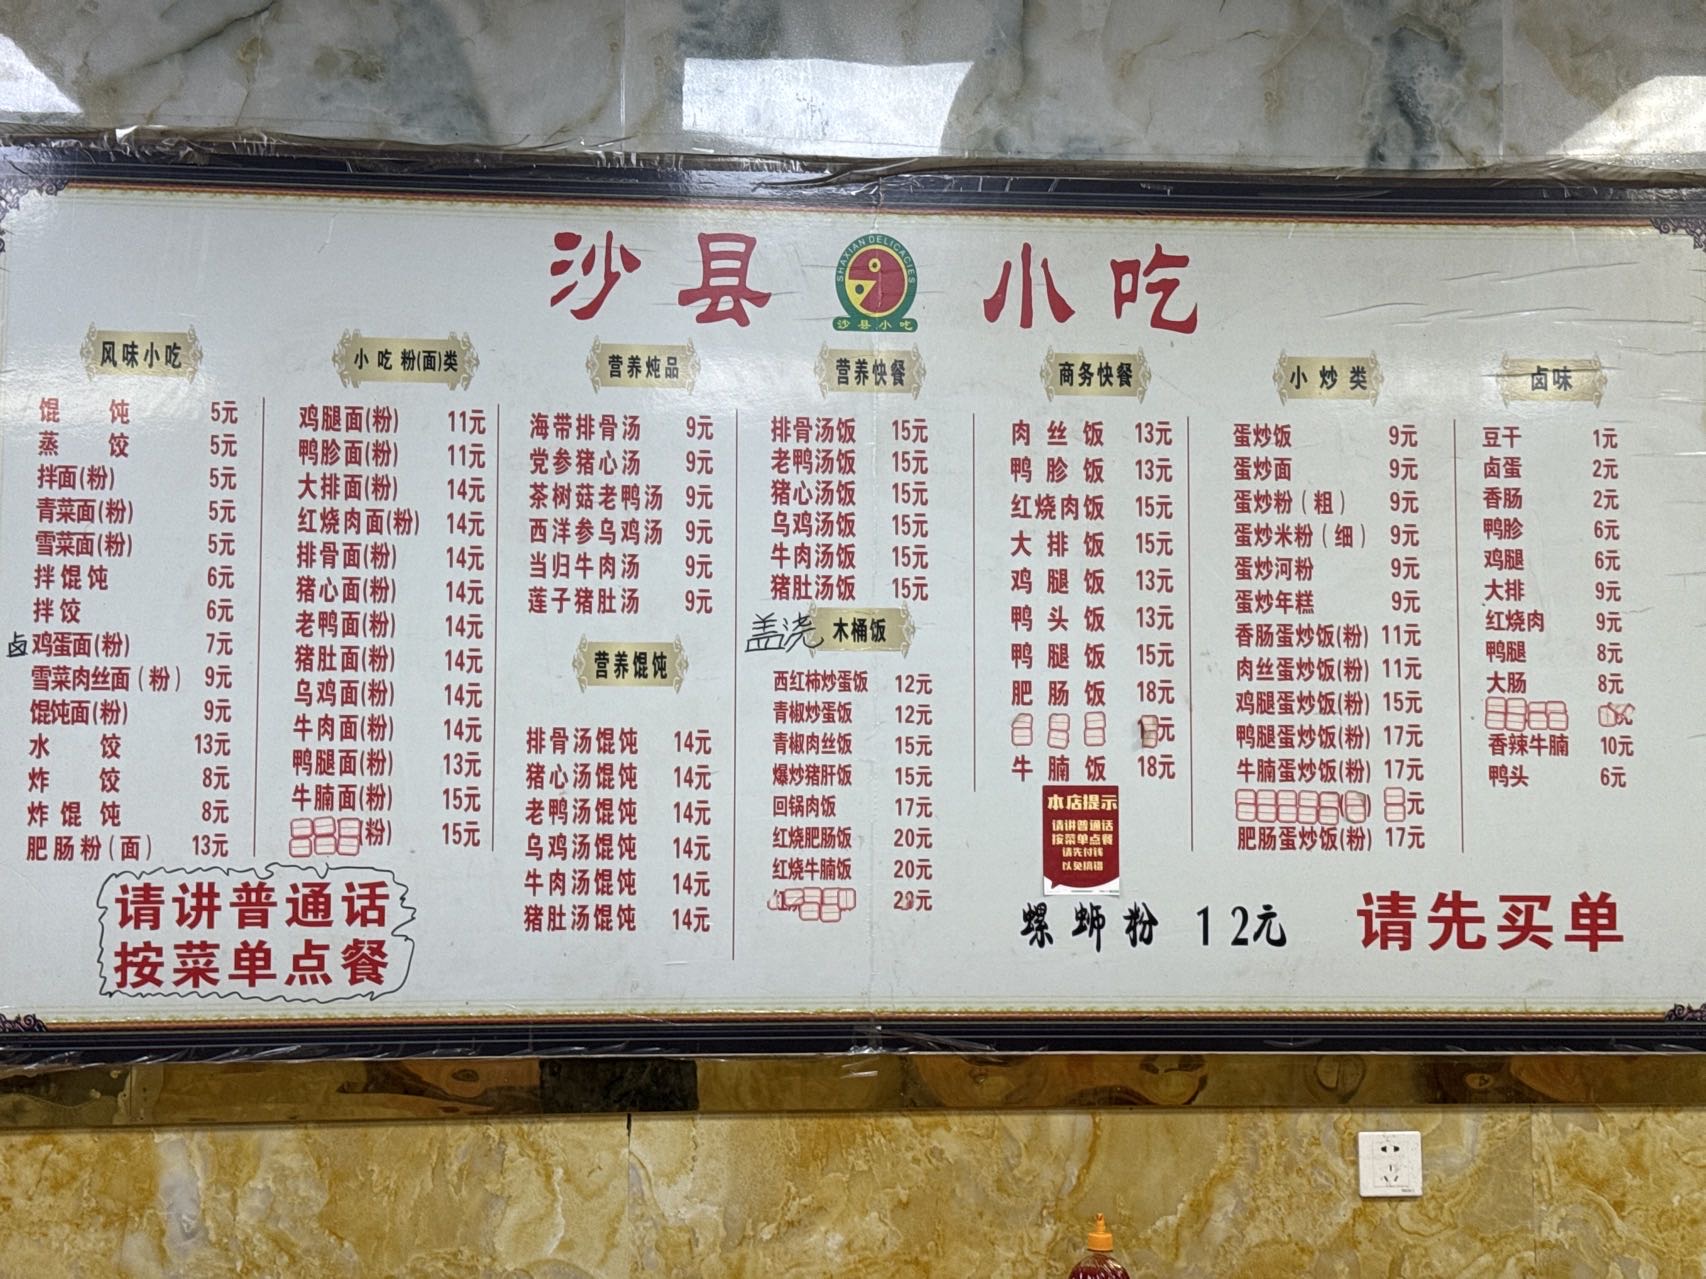 沙县 小吃
SHAXIAN DELICACIES
沙县小吃
风味小吃
馄饨 5元
蒸饺 5元
拌面(粉) 5元
青菜面(粉) 5元
雪菜面(粉) 5元
拌馄饨 6元
拌饺 6元
卤鸡蛋面(粉) 7元
雪菜肉丝面(粉) 9元
馄饨面(粉) 9元
水饺 13元
炸饺 8元
炸馄饨 8元
肥肠粉(面) 13元
请讲普通话
按菜单点餐
小吃 粉(面)类
鸡腿面(粉) 11元
鸭胗面(粉) 11元
大排面(粉) 14元
红烧肉面(粉) 14元
排骨面(粉) 14元
猪心面(粉) 14元
老鸭面(粉) 14元
猪肚面(粉) 14元
乌鸡面(粉) 14元
牛肉面(粉) 14元
鸭腿面(粉) 13元
牛腩面(粉) 15元
(粉) 15元
营养炖品
海带排骨汤 9元
党参猪心汤 9元
茶树菇老鸭汤 9元
西洋参乌鸡汤 9元
当归牛肉汤 9元
莲子猪肚汤 9元
营养馄饨
排骨汤馄饨 14元
猪心汤馄饨 14元
老鸭汤馄饨 14元
乌鸡汤馄饨 14元
牛肉汤馄饨 14元
猪肚汤馄饨 14元
营养快餐
排骨汤饭 15元
老鸭汤饭 15元
猪心汤饭 15元
乌鸡汤饭 15元
牛肉汤饭 15元
猪肚汤饭 15元
盖浇 木桶饭
西红柿炒蛋饭 12元
青椒炒蛋饭 12元
青椒肉丝饭 15元
爆炒猪肝饭 15元
回锅肉饭 17元
红烧肥肠饭 20元
红烧牛腩饭 20元
元
商务快餐
肉丝饭 13元
鸭胗饭 13元
红烧肉饭 15元
大排饭 15元
鸡腿饭 13元
鸭头饭 13元
鸭腿饭 15元
肥肠饭 18元
元
牛腩饭 18元
本店提示
请讲普通话
按菜单点餐
请先付钱
以免搞错
螺蛳粉 12元
小炒类
蛋炒饭 9元
蛋炒面 9元
蛋炒粉(粗) 9元
蛋炒米粉(细) 9元
蛋炒河粉 9元
蛋炒年糕 9元
香肠蛋炒饭(粉) 11元
肉丝蛋炒饭(粉) 11元
鸡腿蛋炒饭(粉) 15元
鸭腿蛋炒饭(粉) 17元
牛腩蛋炒饭(粉) 17元
元
肥肠蛋炒饭(粉) 17元
卤味
豆干 1元
卤蛋 2元
香肠 2元
鸭胗 6元
鸡腿 6元
大排 9元
红烧肉 9元
鸭腿 8元
大肠 8元
香辣牛腩 10元
鸭头 6元
请先买单